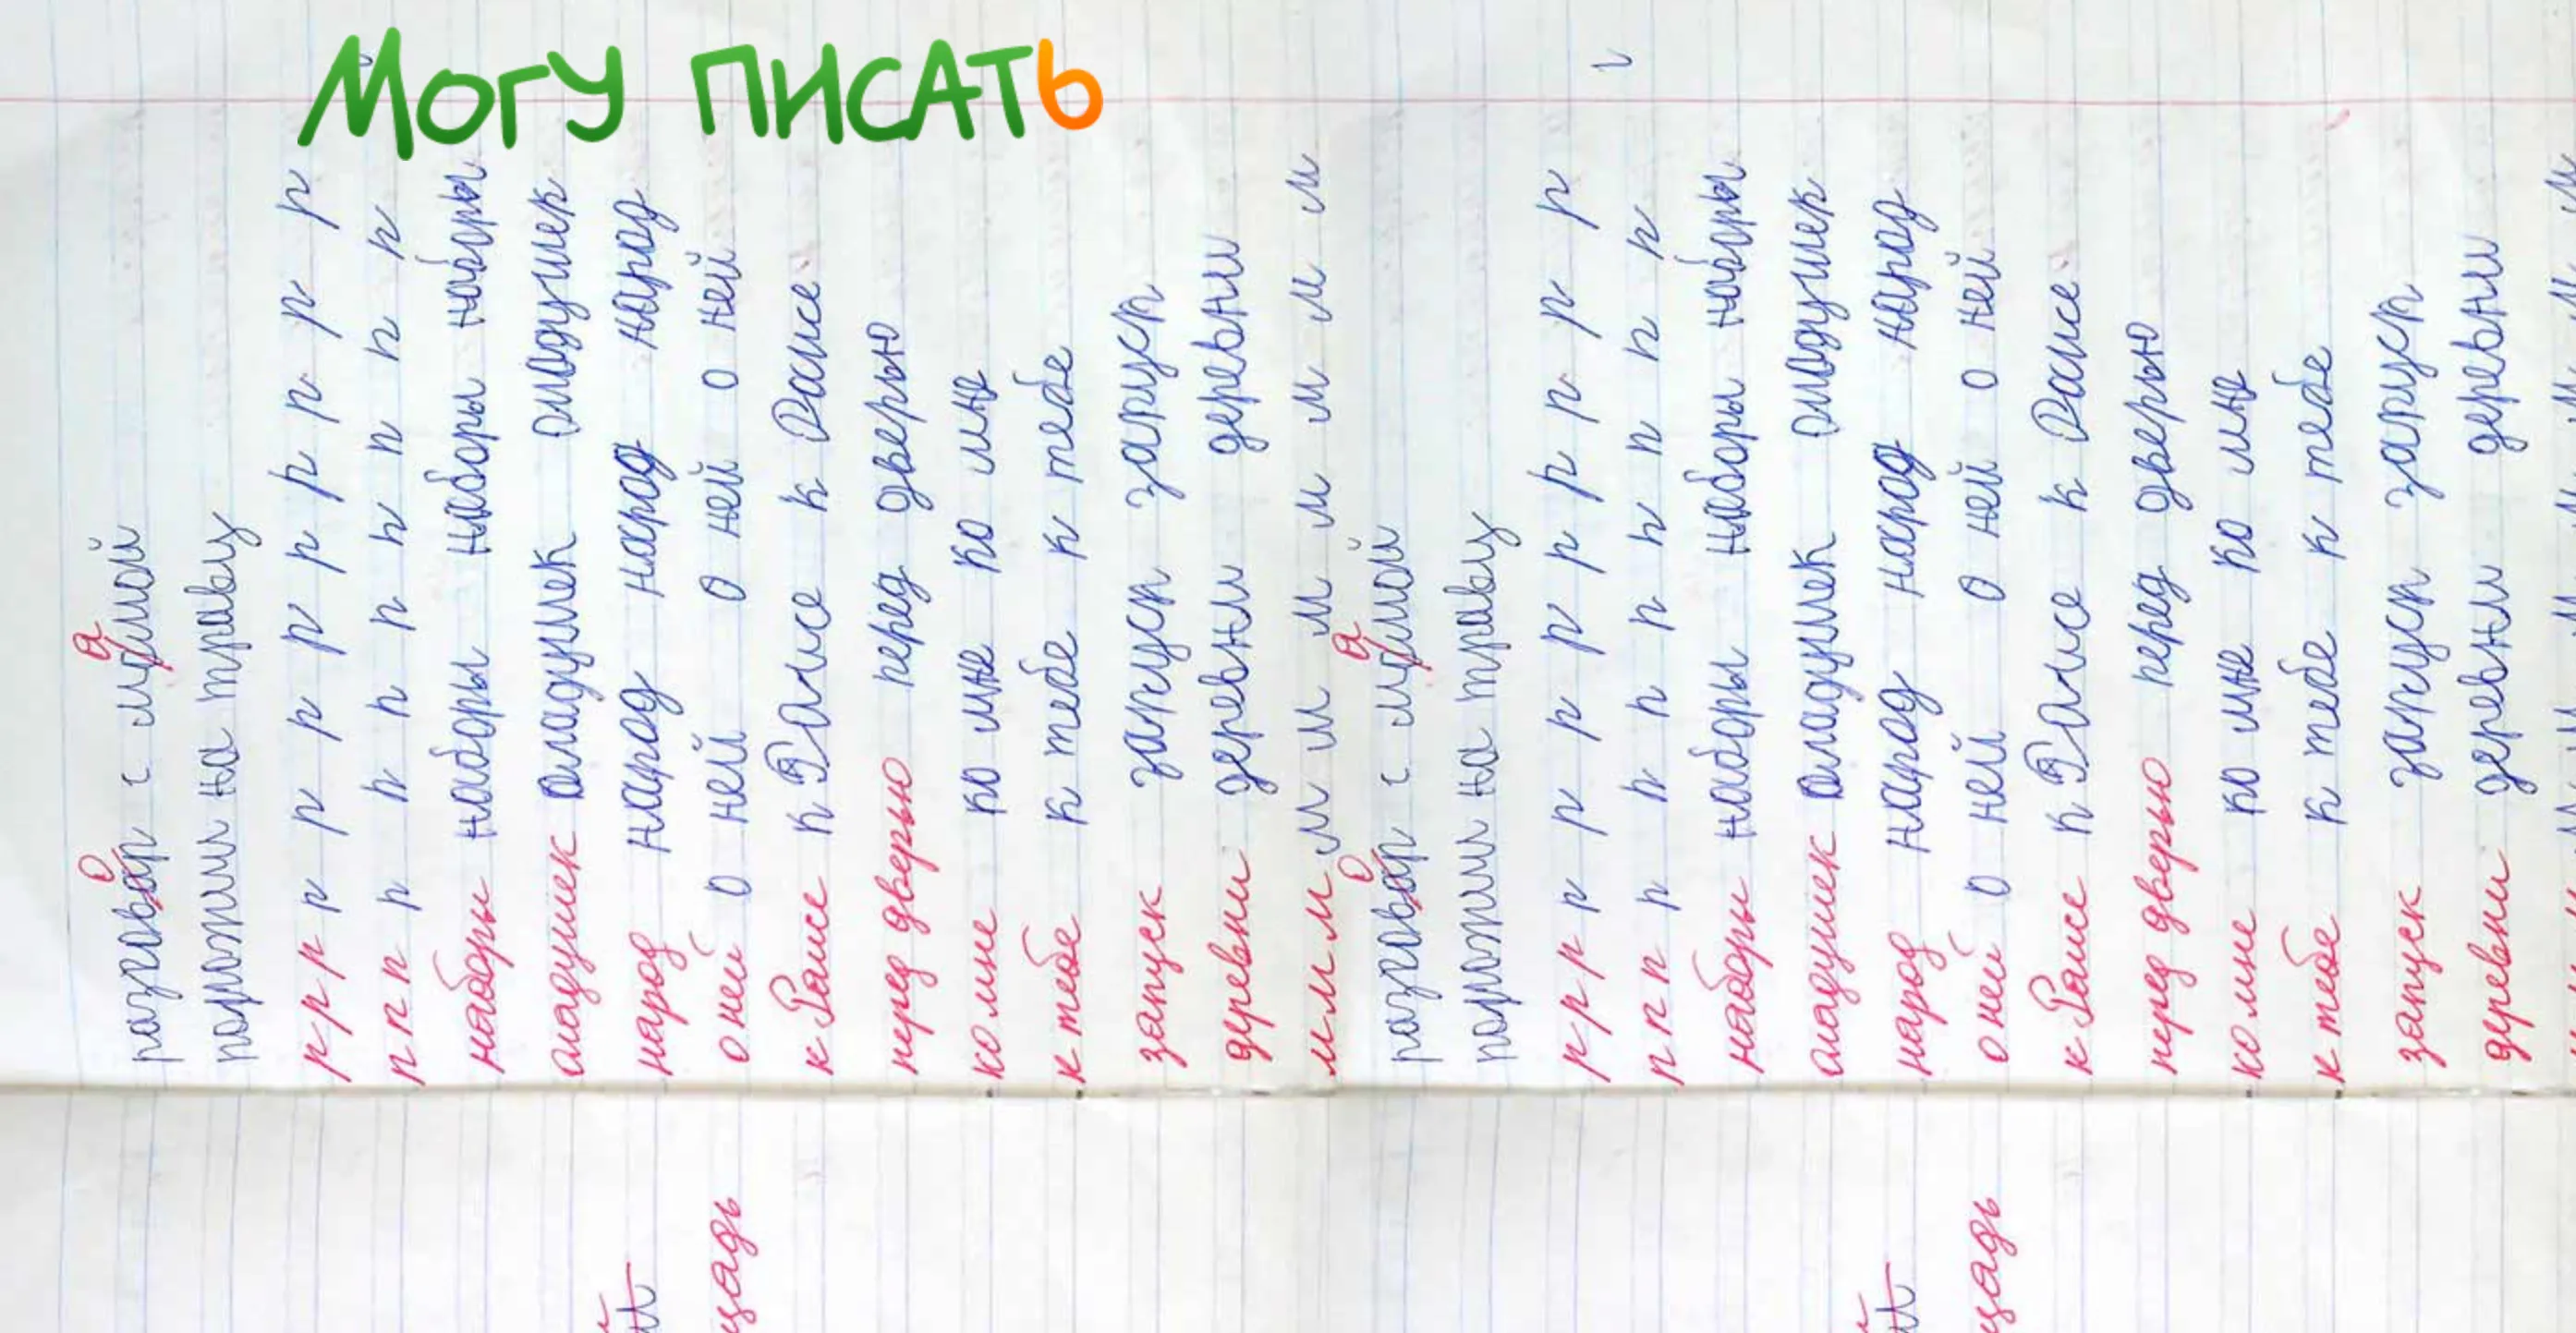 Могу писать
разговор с мамой
положили на траву
р р р р р р р р р р р р р
п п п п п п п п п п п
наборы наборы наборы наборы
оладушек оладушек оладушек
народ народ народ народ
о ней о ней о ней о ней
к Раисе к Раисе к Раисе
перед дверью перед дверью
ко мне ко мне ко мне
к тебе к тебе к тебе
запуск запуск запуск
деревни деревни деревни
м м м м м м м м м м м
разговор с мамой
положили на траву
р р р р р р р р р р р р р
п п п п п п п п п п п
наборы наборы наборы наборы
оладушек оладушек оладушек
народ народ народ народ
о ней о ней о ней о ней
к Раисе к Раисе к Раисе
перед дверью перед дверью
ко мне ко мне ко мне
к тебе к тебе к тебе
запуск запуск запуск
деревни деревни деревни